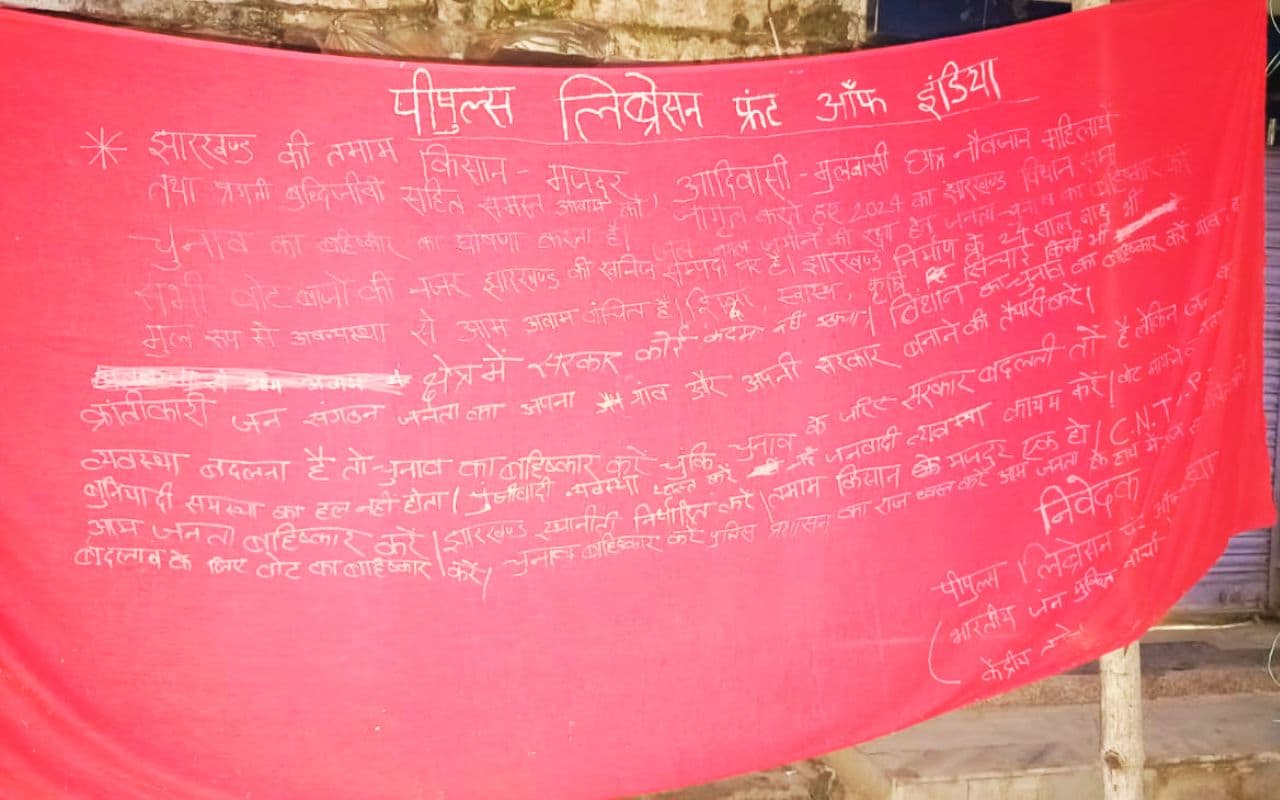 पीपुल्स लिब्रेसन फ्रंट ऑफ इंडिया
झारखण्ड की तमाम किसान - मजदुर, आदिवासी - मुलवासी छात्र नौवजान महिलायें
तथा प्रगती बुद्धिजीवी सहित समस्त आवाम को जागृत करते हुए 2024 का झारखण्ड विधान सभा
चुनाव का बहिष्कार का घोषणा करता है। जल जंगल जमीन की रक्षा हेतु जनता चुनाव का बहिष्कार करें
सभी वोट बाजों की नजर झारखण्ड की खनिज सम्पदा पर है। झारखण्ड निर्माण के 24 साल बाद भी
मुल रूप से अवन्यस्था से आम अवाम वंचित है। स्वास्थ, कृषि सिंचाई किसी भी
क्षेत्र में सरकार कोई कदम नहीं उठाया। विधान सभा चुनाव का बहिष्कार करें गांव
क्रांतीकारी जन संगठन जनता का अपना गांव और अपनी सरकार बनाने की तैयारी करें।
व्यवस्था बदलना है तो चुनाव का बहिष्कार करें चुकि चुनाव के जरिए सरकार बदलती तो है लेकिन जनता
बुनियादी समस्या का हल नही होता। पुंजीवादी व्यवस्था ध्वस्त करें जनवादी व्यवस्था कायम करें। वोट मांगने
आम जनता बहिष्कार करें। झारखण्ड स्थानीती निर्धारित करें। तमाम किसान मजदुर एक हो। C.N.T
बदलाव के लिए वोट का बहिष्कार करें। चुनाव बहिष्कार करें पुलिस प्रशासन का राज ध्वस्त करें आम जनता के हाथ में
निवेदक
पीपुल्स लिब्रेसन फ्रंट ऑफ
(भारतीय जन मुक्ति मोर्चा
केंद्रीय